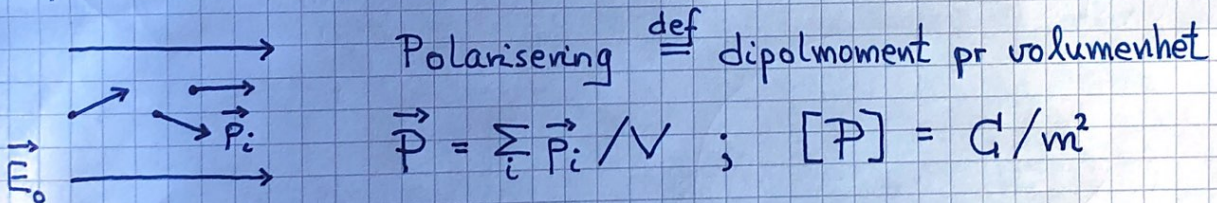 Polarisering def= dipolmoment pr volumenhet
p⃗ᵢ
P⃗ = Σᵢ p⃗ᵢ /V ; [P] = C/m²
E⃗₀